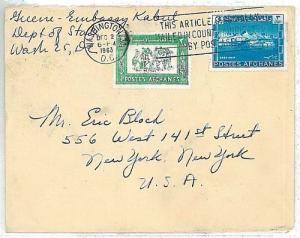 Greene - Embassy Kabul
Dept of State
Wash 25, D.C.
WASHINGTON
DEC 2
6-PM
1963
D.C.
THIS ARTICLE
MAILED IN COUN
BY POS
POSTES AFGHANES
POSTES AFGHANES
Mr. Eric Bloch
556 West 141st Street
New York, New York
U.S.A.